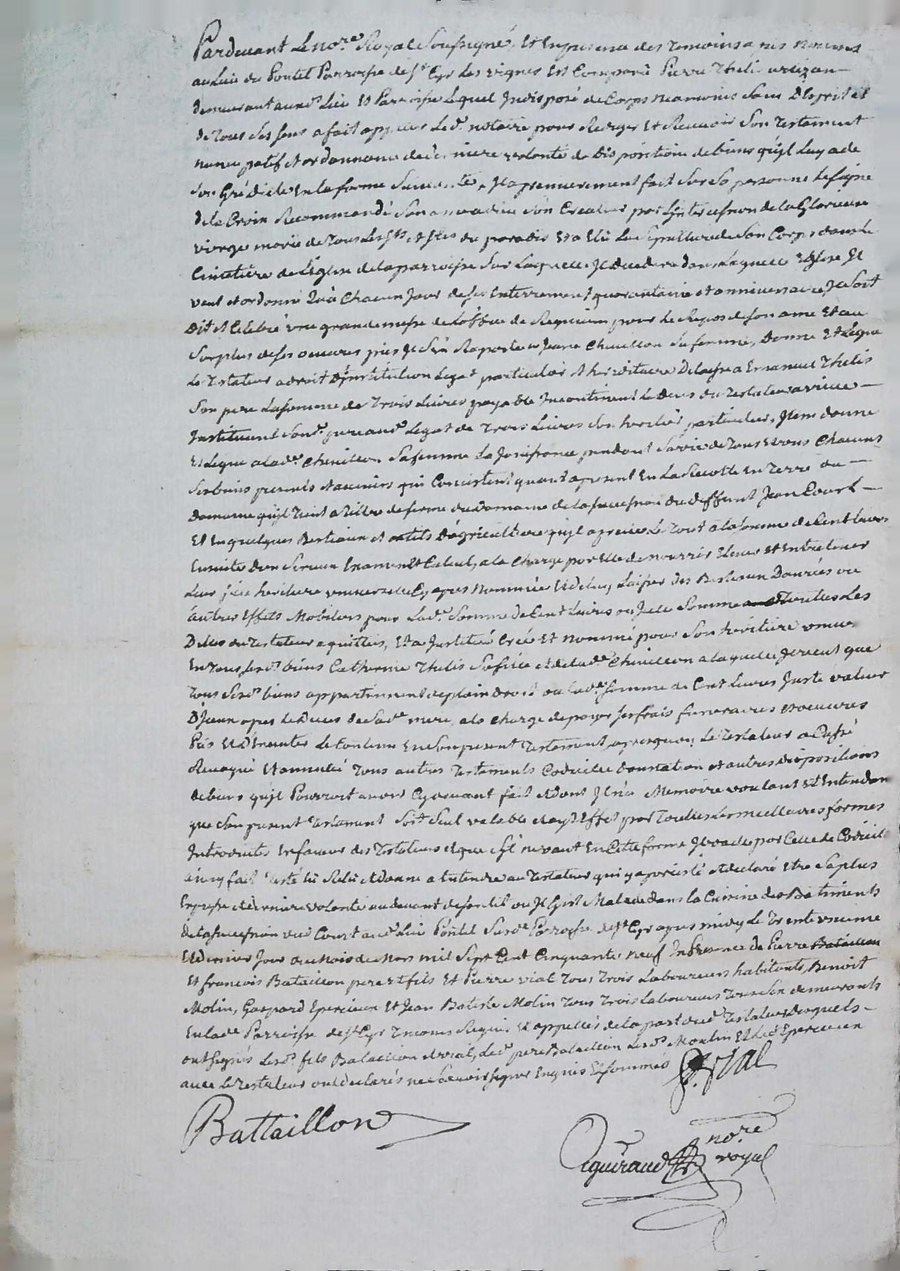 Pardevant Le no.re Royal Soussigné, Et En presence des temoins a nes nommés
au Lieu du Pontel Parroisse de St Cyr Les vignes Est Comparu Pierre Thelis
demeurant aud.t Lieu Et Parroisse Lequel Indisposé de Corps neamoins Sain D'Esprit et
de Tous Ses sens a fait appeller Le d.t notaire pour Rediger Et Recevoir Son Testament
nuncupatif Et ordonnance de derniere volonté de Disposition de biens qu'jl Luy a de
Son Gré dicté En la forme Suivante, Il a premierement fait Sur Sa personne Le Signe
de la Croix Recommandé Son ame a dieu Son Createur par l'jntercession de la Glorieuse
vierge marie de Tous Les Sts et Stes du paradis Et a Elû La Sepulture de Son Corps dans Le
Cimetière de L'Eglise de la parroisse Sur Laquelle Il decedera dans Laquelle Eglise Il
veut et ordonne qu'à Chacun Jour de Ses Enterrement quarantaine et anniversaire Il Soit
Dit et Celebré une grande messe de L'office de Requiem pour Le Repos de Son ame Et au
Surplus de Ses oeuvres pies Il S'En Raporte a Jeane Chevillon Sa femme, Donne Et Legue
Le Testateur a droit D'jnstitution Legat particulier Et hereditaire Delaisse a Emanuel Thelis
Son pere La Somme de Trois Livres payable Incontinent Le deces du Testateur
Instituant Sond.t pere aud.t Legat de Trois Livres Son heritier particulier, Item donne
Et Legue a lad.e Chevillon Sa femme La Jouissance pendant Sa vie de Tous Et uns Chacuns
Ses biens presents et avenirs qui Consistent quant a present En La Recolte En Terre du
Domaine qu'jl Tient a Titre de ferme du Domaine de la Succession du deffunt Jean Court
Et En quelques Bestiaux Et outils D'agriculture Le Tout a la Somme de Cent Livres
a la Charge par Elle de nourrir Elever et Entretenir
Leur fille heritiere universelle Cy apres Nommée Et de luy Laisser des Bestiaux Danrées ou
autres Effets Mobiliers pour Lad.e Somme de Cent Livres ou Icelle Somme Toutes Les
Dettes du Testateur aquittées, Et a Institué Créé Et nommé pour Son heritiere
En Tous Sesd.ts biens Catherine Thelis Sa fille et de lad.e Chevillon a laquelle Il veut que
Tous Sesd.ts biens appartiennent de plain droit ou lad.e Somme de Cent Livres Juste valeur
D'jceux apres Le deces de Sad.e mere, a la Charge de payer Ses frais funeraires et oeuvres
Pies Et D'Executer Le Contenu En Son present Testament, Le Testateur a Cassé
Revoqué Et annullé Tous autres Testaments Codicilles donnation et autres dispositions
de biens qu'jl Pourroit avoir Cy devant fait et dont Il n'a Memoire voulant Et Entendant
que Son present Testament Soit Seul valable et ayt Effet par Toutes Les meilleures formes
Introduites En faveur des Testateurs Et que S'jl ne vaut En Cette forme Il vaille par Celle de Codicile
Ainsy fait Testé lû Relû Et donné a Entendre au Testateur qui y a persisté et declaré Etre Sa plus
Expresse et derniere volonté au devant de Son lit ou Il Gist Malade dans la Cuisine des Batiments
de la Succession dud. Court aud.t Lieu Pontel Susd.e Parroisse de St Cyr apres midy Le Trente uneme
Et Dernier Jour du Mois de Mars mil Sept Cent Cinquante neuf In presence de Pierre Bataillon
Et francois Bataillon pere Et fils Et Pierre vial Tous Trois Laboureurs habitants, Benoit
Molin, Gaspard Epercieux Et Jean Batiste Molin Tous Trois Laboureurs Tous Six demeurants
En lad.e Parroisse de St Cyr Temoins Requis Et appellés de la part dud.t Testateur desquels
ont Signés Lesd.ts fils Bataillon et vial, Led.t pere Bataillon Lesd.ts Moulin Et led.t Epercieux
avec Le Testateur ont declarés ne Scavoir Signer Enquis Et Sommés P. Vial
Battaillon
no.re royal